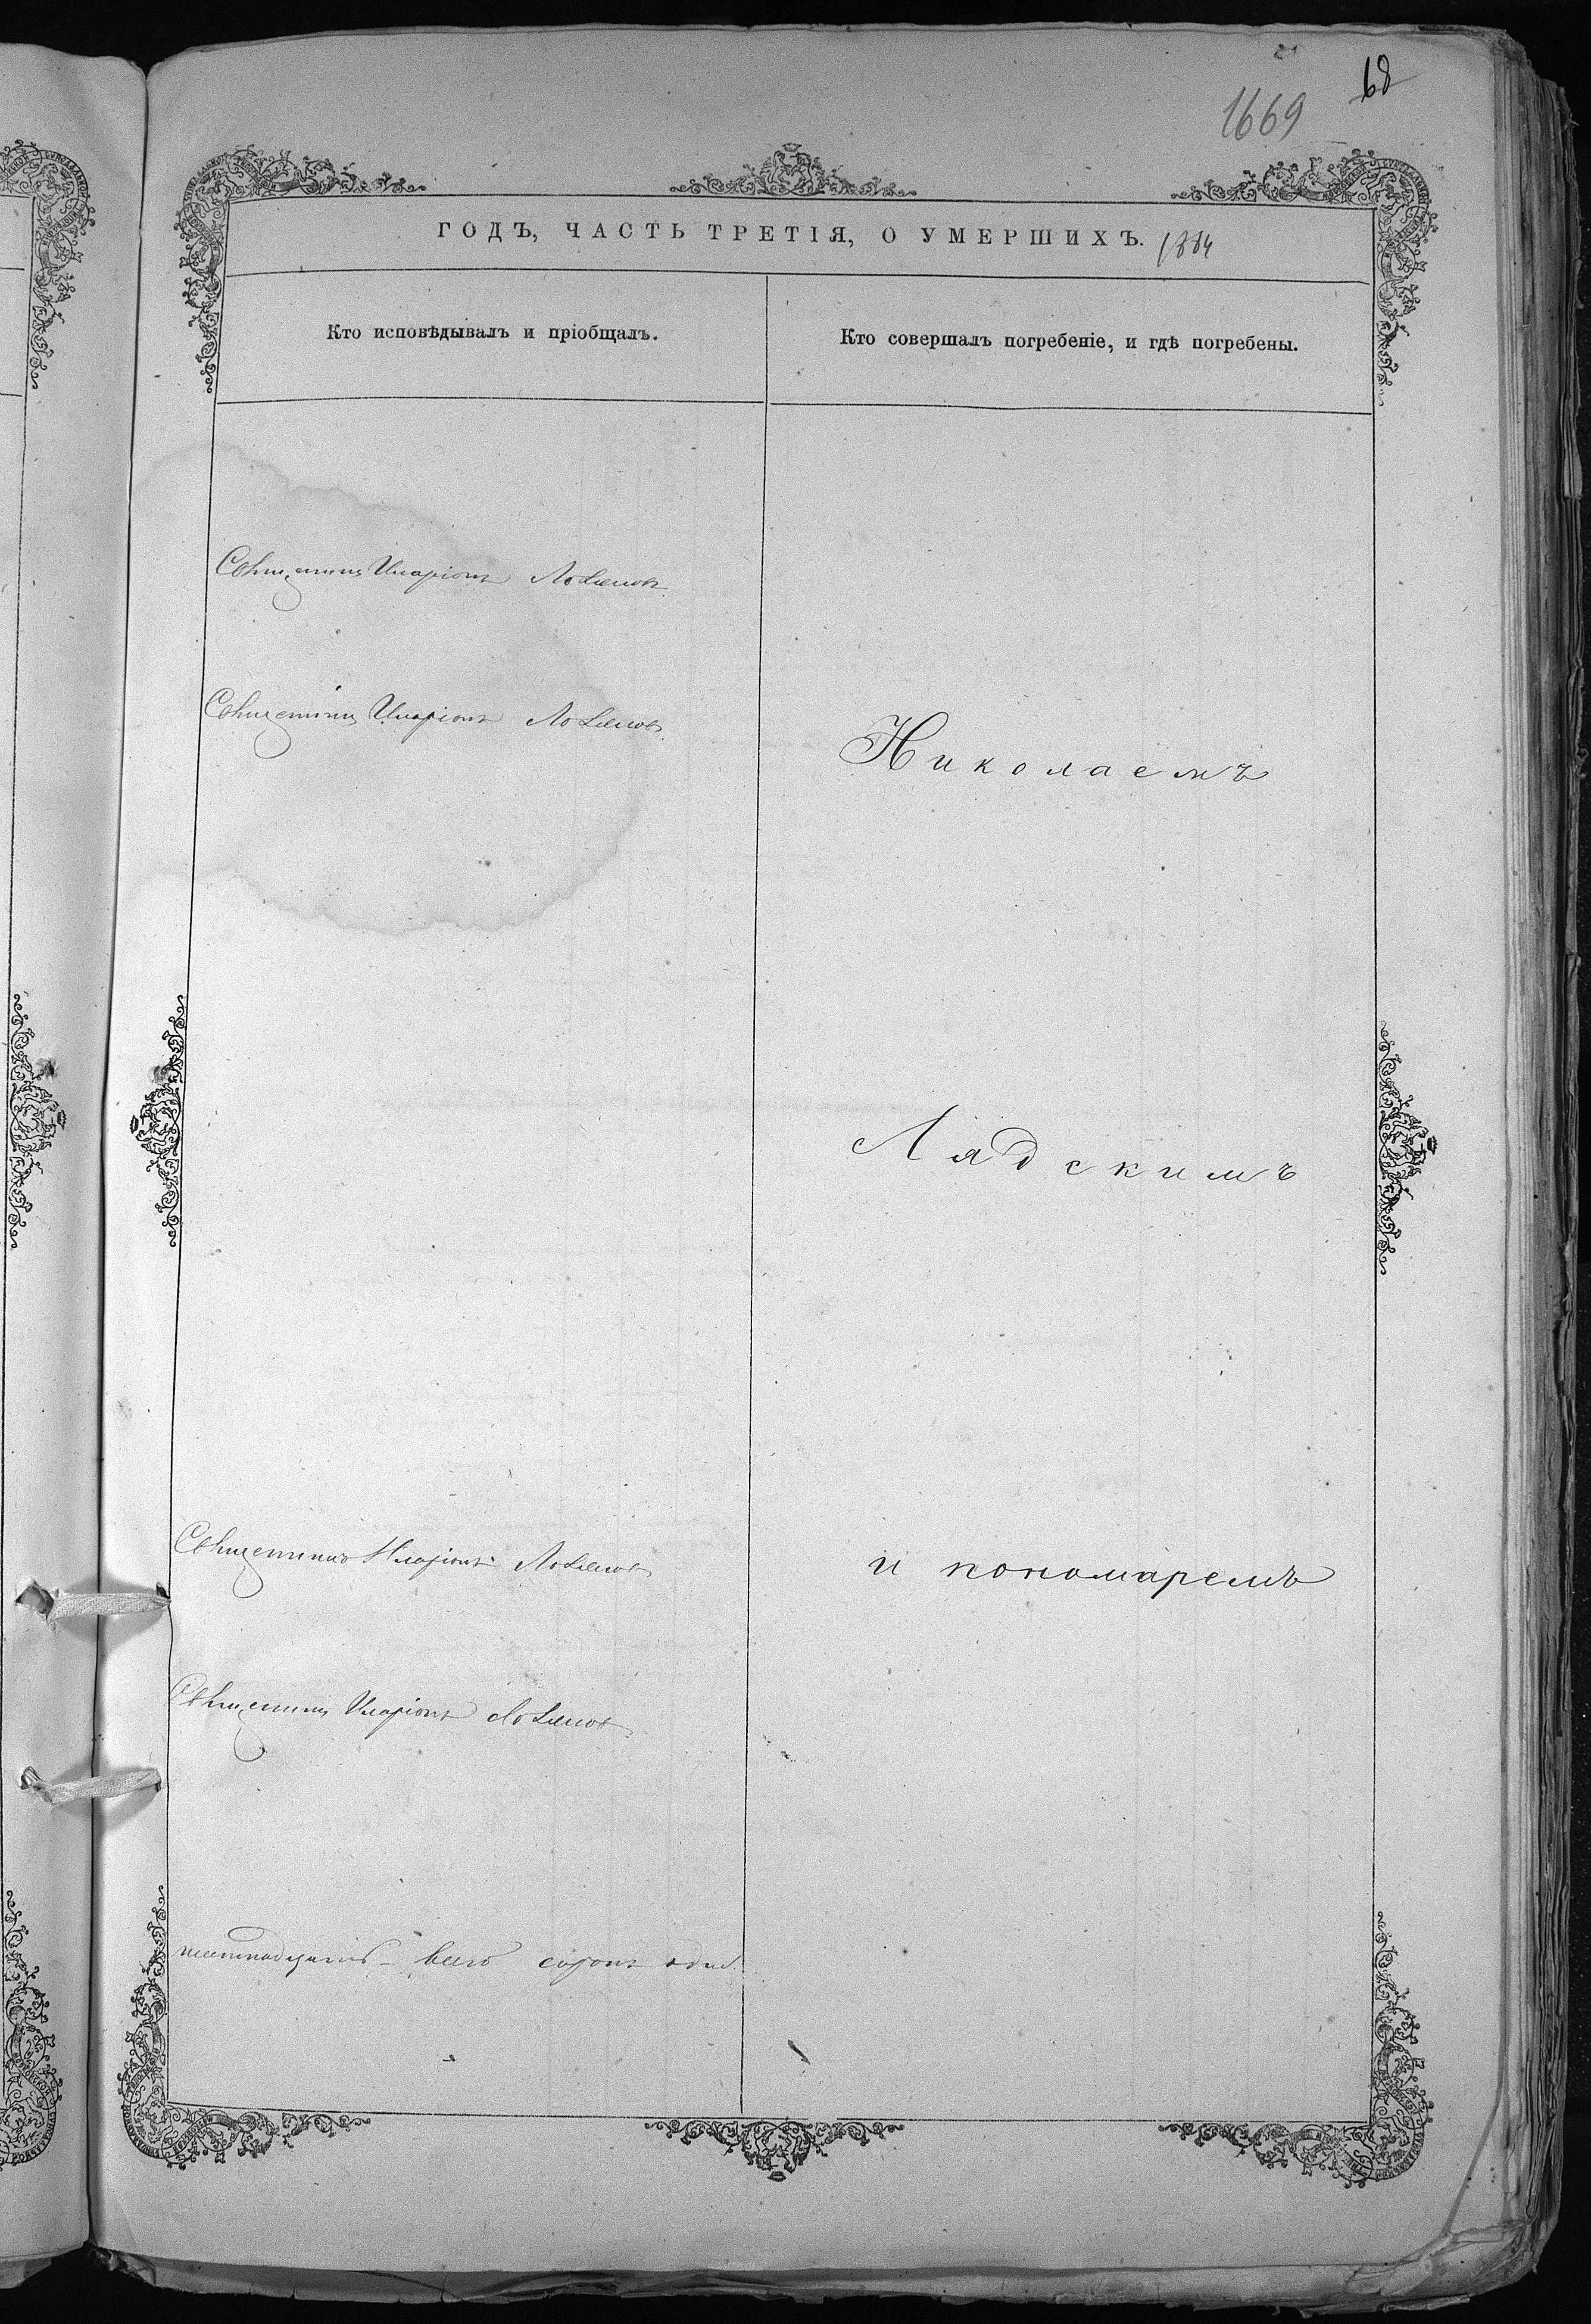 68
1669
ГОДЪ, ЧАСТЬ ТРЕТІЯ, О УМЕРШИХЪ. 1884
Кто исповѣдывалъ и пріобщалъ.
Кто совершалъ погребеніе, и гдѣ погребены.
Священникъ Иларіонъ
Священникъ Иларіонъ
Николаемъ
Лядскимъ
Священникъ Иларіонъ
и пономаремъ
Священникъ Иларіонъ
всего сорокъ один.